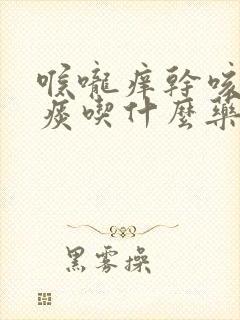 喉嚨痒幹咳
痰喫什麼藥
黑雾操